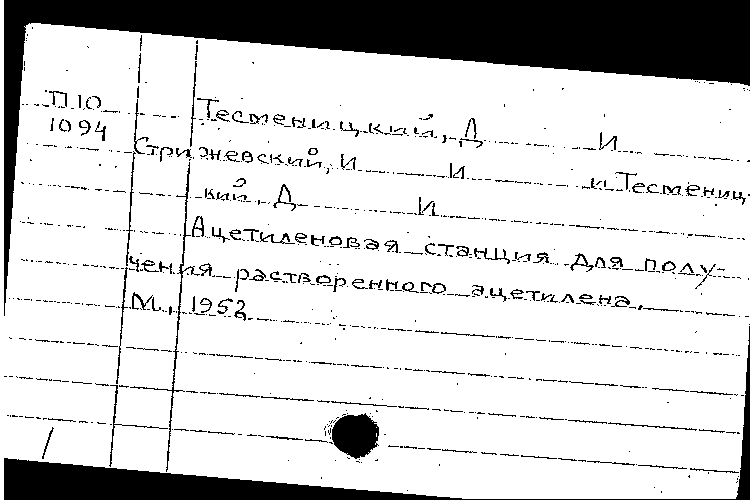 П10 Тесменицкий, Д И
1094 Стрижевский, И И и Тесмениц-
кий, Д И
Ацетиленовая станция для полу-
чения растворенного ацетилена.
М., 1952